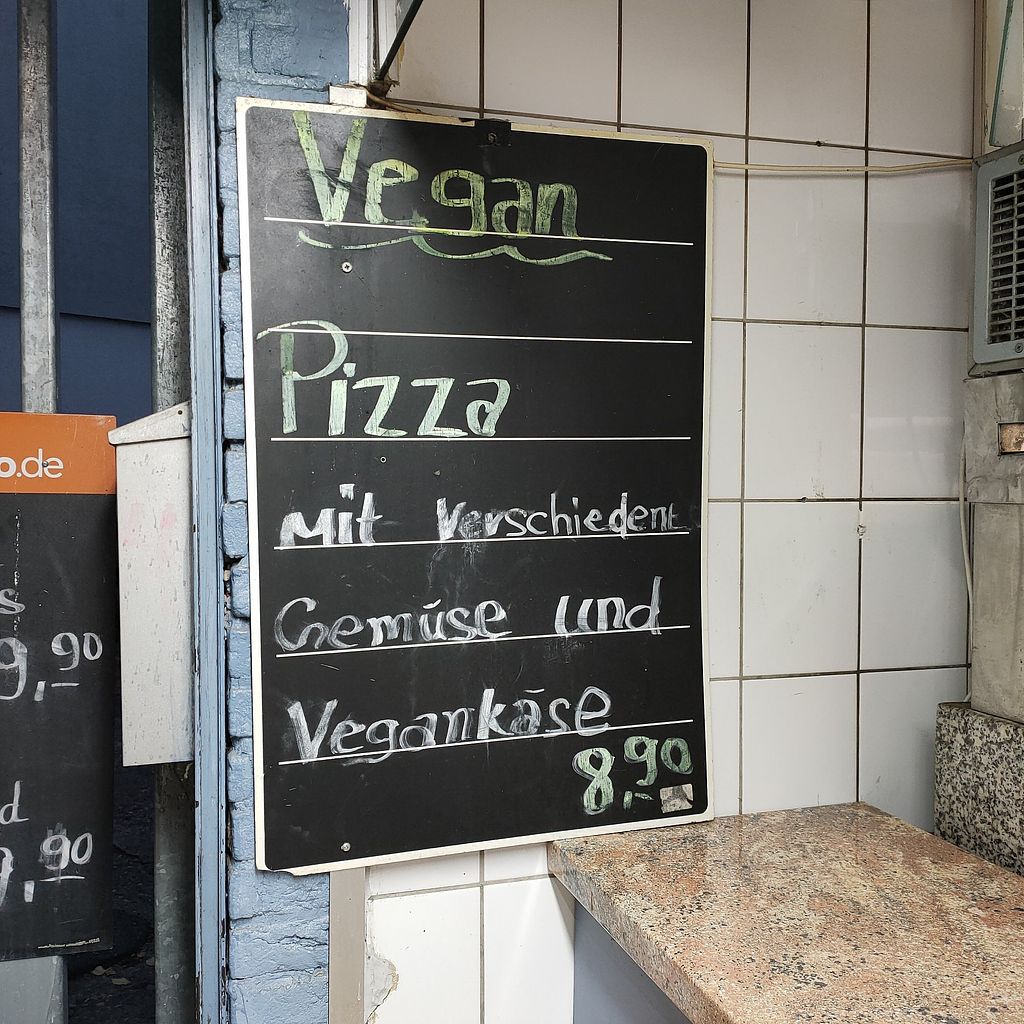 Vegan
Pizza
Mit Verschiedene
Gemüse und
Vegankäse
8,90
o.de
s
9,90
d
9,90